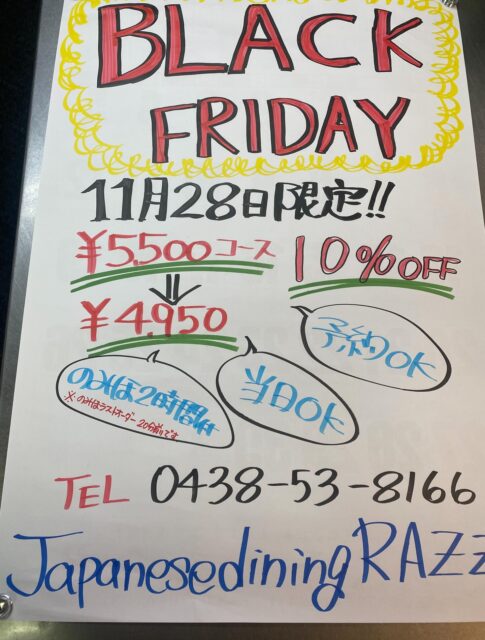 BLACK
FRIDAY
11月28日限定!!
¥5,500コース 10%OFF
¥4,950
予約OK
当日OK
のみほ2時間付
※のみほラストオーダー20分前です
TEL 0438-53-8166
Japanesedining RAZZ